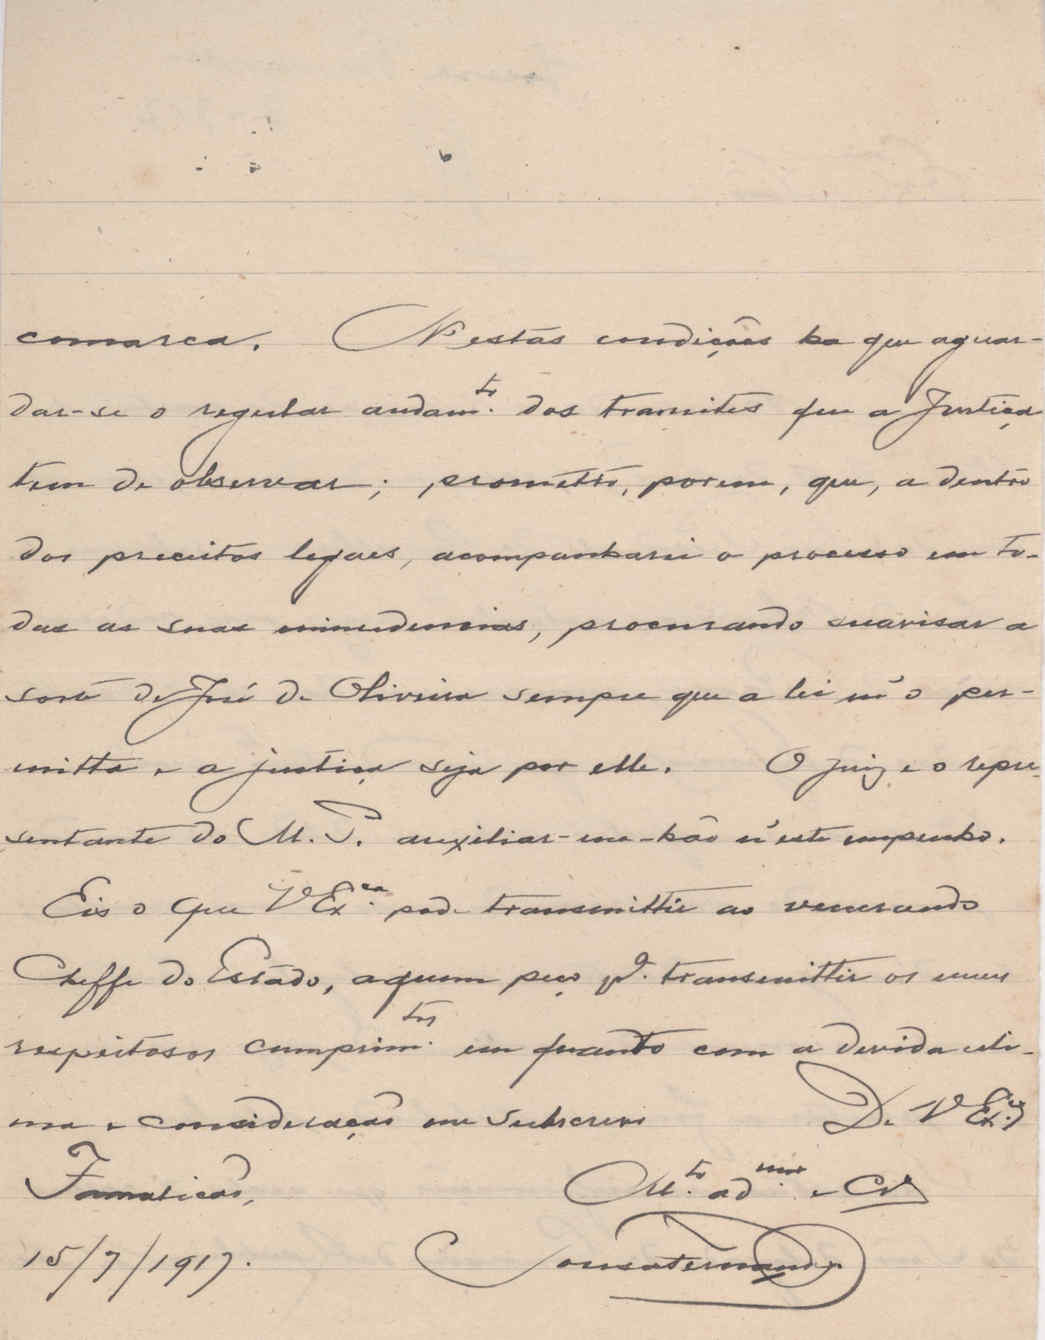 comarca. Nestas condições ha que aguar-
dar-se o regular andam.to dos tramites que a Justiça
tem de observar; prometto, porem, que, a dentro
dos preceitos legaes, acompanharei o processo em to-
das as suas minudencias, procurando suavisar a
sorte de José de Oliveira sempre que a lei m'o per-
mitta e a justiça seja por elle. O juiz e o repre-
sentante do M. P. auxiliar-me-hão n'este empenho.
Eis o que V Ex.cia pode transmittir ao venerando
Cheffe do Estado, a quem peço p.a transmittir os meus
respeitosos cumprim.tos em quanto com a devida esti-
ma e consideração me subscrevo De V Ex.cia
Famalicão, M.to ad.mor e Cr.do
15/7/1917. Sousa Fernandes